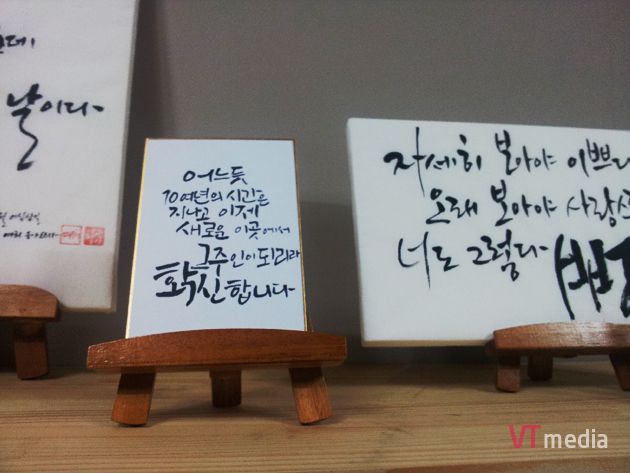 날이다
어느듯
10여년의 시간은
지나고 이제
새로운 이곳에서
그 주인이 되리라
확신합니다
자세히 보아야 이쁘다
오래 보아야 사랑
너도 그렇다
VTmedia